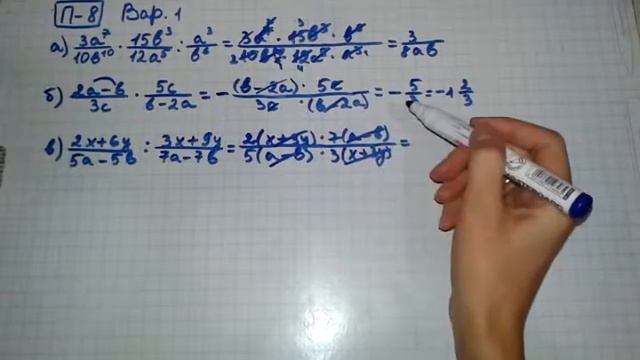 П-8 Вар. 1
а) 3a⁷/10b¹⁰ · 15b³/12a⁵ : a³/b⁶ = 3a⁷ · 15b³ · b⁶/10b¹⁰ · 12a⁵ · a³ = 3/8ab
б) 2a-b/3c · 5c/b-2a = -(b-2a) · 5c/3c · (b-2a) = -5/3 = -1 2/3
в) 2x+6y/5a-5b : 3x+9y/7a-7b = 2(x+3y) · 7(a-b)/5(a-b) · 3(x+3y) =